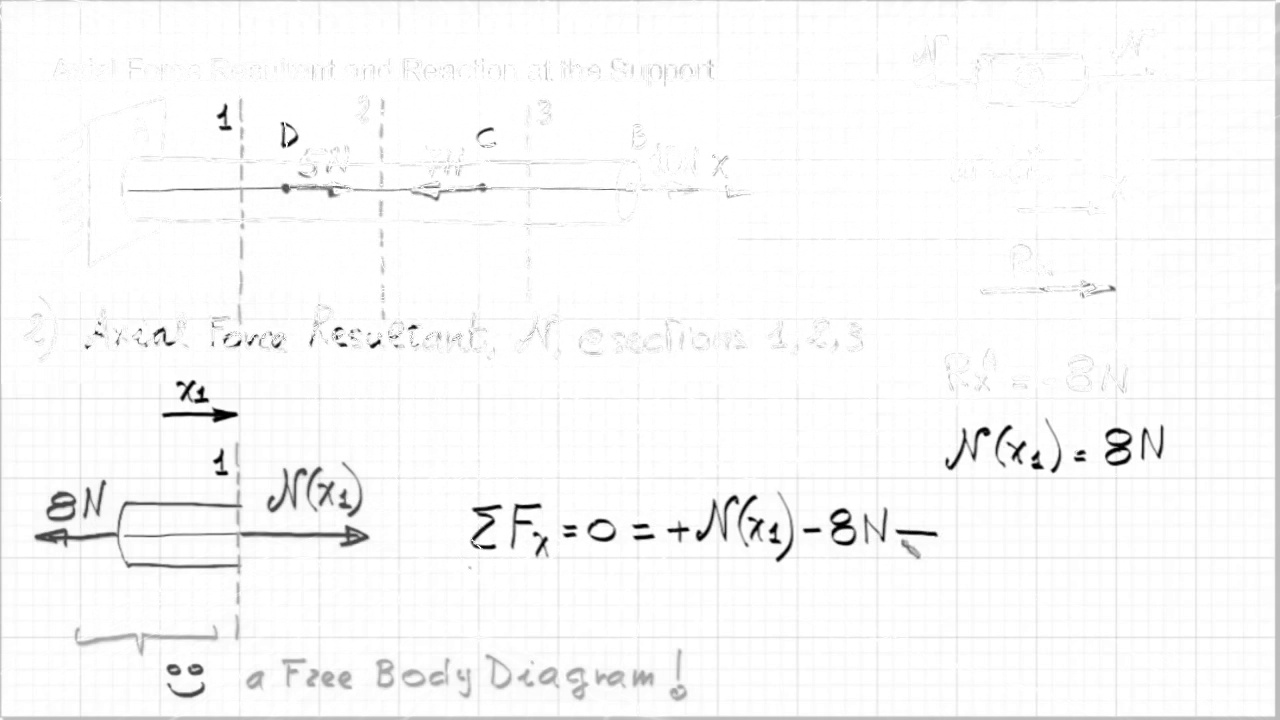 Axial Force Resultant and Reaction at the Support
N N
1 2 3
D C B
5N 7N 10N x
Rx
2) Axial Force Resultant, N, @ sections 1, 2, 3
Rx^A = -8N
x1
N(x1) = 8N
1
8N N(x1)
ΣFx = 0 = +N(x1) - 8N —
a Free Body Diagram!